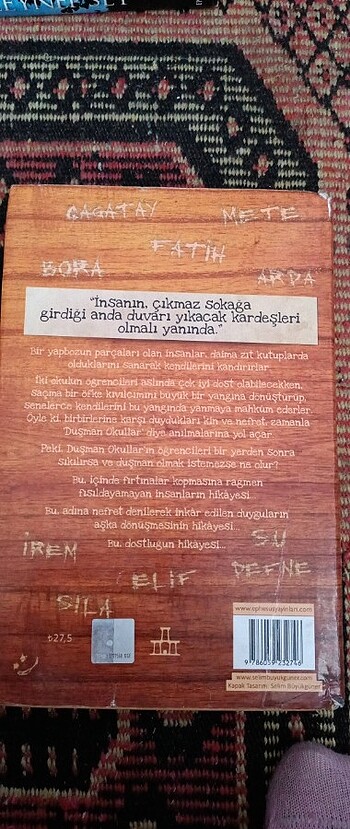 ÇAĞATAY METE
FATİH
BORA ARDA
"İnsanın, çıkmaz sokağa
girdiği anda duvarı yıkacak kardeşleri
olmalı yanında."
Bir yapbozun parçaları olan insanlar, daima zıt kutuplarda
olduklarını sanarak kendilerini kandırırlar.
İki okulun öğrencileri aslında çok iyi dost olabilecekken,
saçma bir öfke kıvılcımını büyük bir yangına dönüştürüp,
senelerce kendilerini bu yangında yanmaya mahkûm ederler.
Öyle ki, birbirlerine karşı duydukları kin ve nefret, zamanla
'Düşman Okullar' diye anılmalarına yol açar.
Peki, Düşman Okullar'ın öğrencileri bir yerden sonra
sıkılırsa ve düşman olmak istemezse ne olur?
Bu, içinde fırtınalar kopmasına rağmen
fısıldayamayan insanların hikâyesi...
Bu, adına nefret denilerek inkâr edilen duyguların
aşka dönüşmesinin hikâyesi...
Bu, dostluğun hikâyesi...
İREM SU
ELİF DEFNE
SILA
₺27,5
www.ephesusyayinlari.com
9 786059 232746
www.selimbuyukguner.com
Kapak Tasarım: Selim Büyükgüner